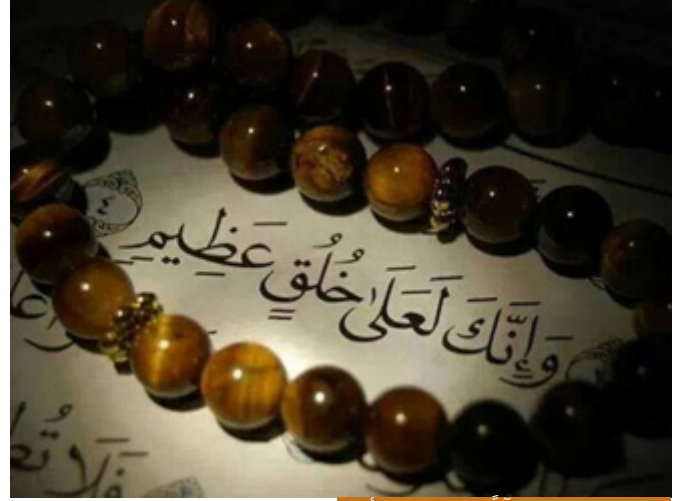 وَإِنَّكَ لَعَلَىٰ خُلُقٍ عَظِيمٍ ٤
فَلَا